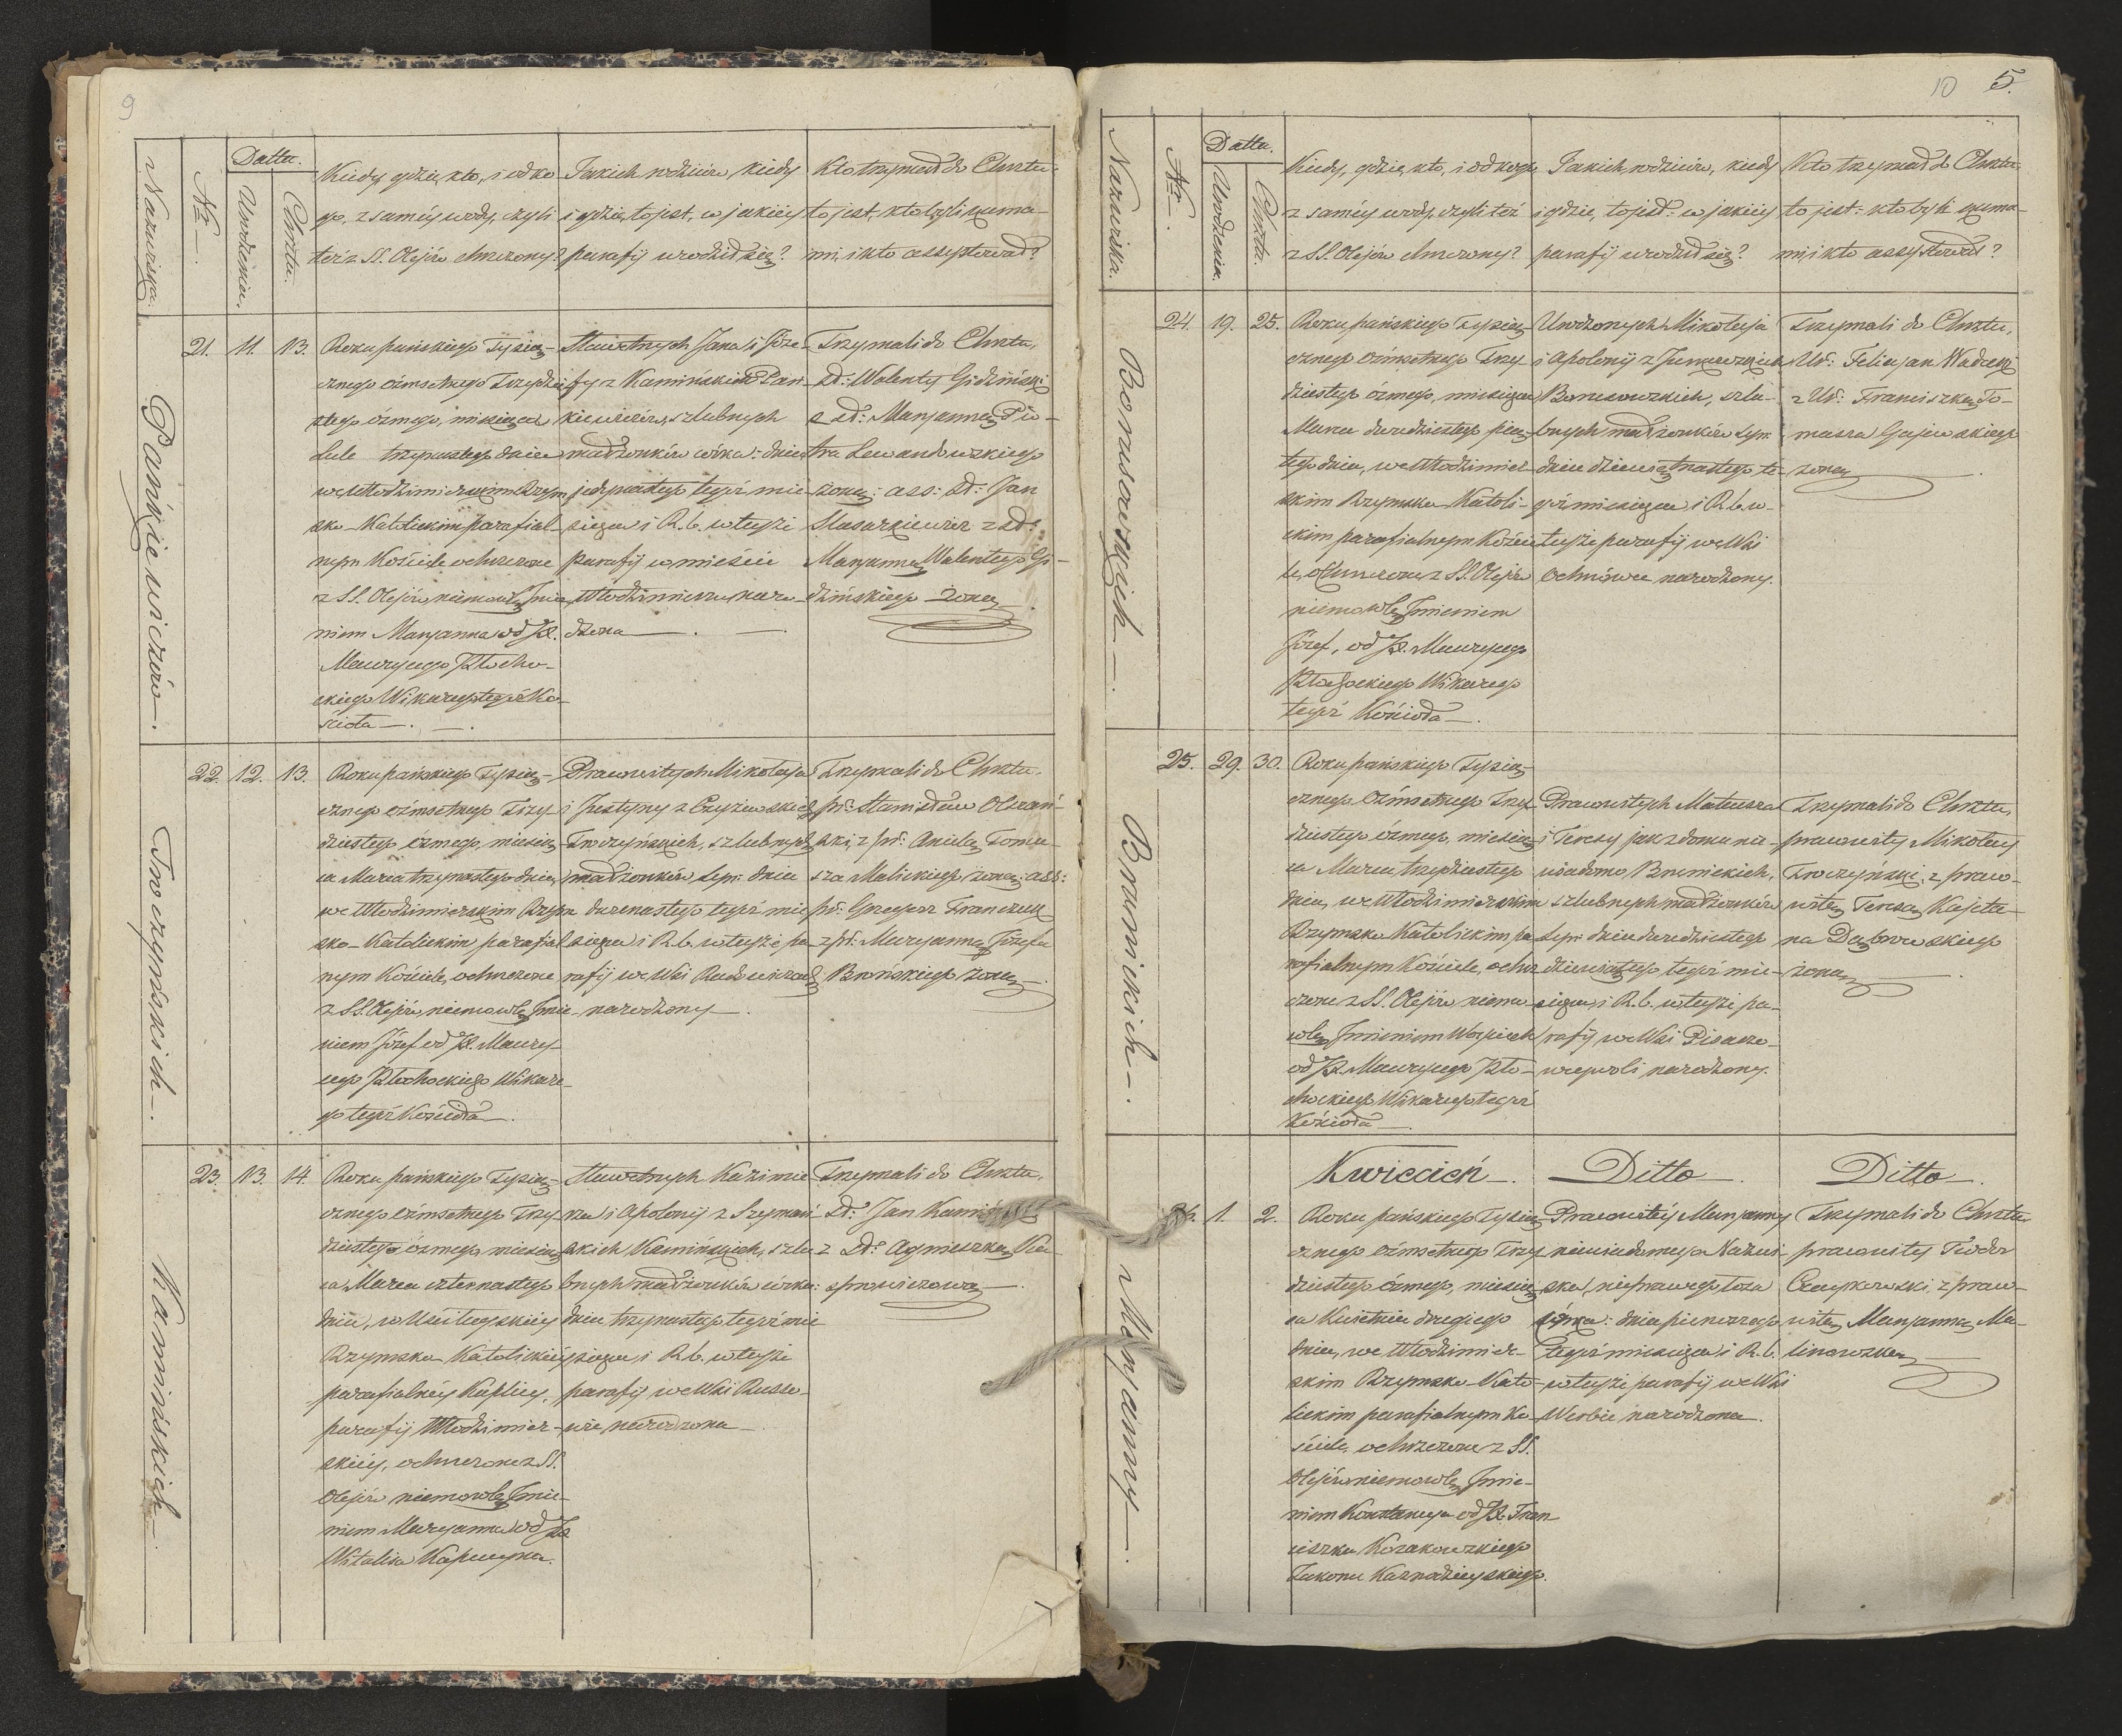 9
Nazwiska.
Nr
Datta.
Urodzenia.
Chrztu.
Kiedy, gdzie, kto, i od ko-
go, z saméy wody, czyli
téż z SS. Olejów chrzczony?
Jakich rodziców, kiedy
i gdzie, to jest, w jakiéy
parafij urodził się?
Kto trzymał do Chrztu.
to jest, kto byli kuma-
mi, i kto assystował?
Pańkiewiczów.
21. 11. 13.
Roku pańskiego Tysią-
cznego ośmsetnego Trzydzie
stego ósmego, miesiąca
trzynastego dnia
we Włodzimierskim Rzym
sko-Katolickim parafial-
nym Kościele ochrzczone
z SS. Olejów niemowlę Jmie
niem Maryanna od JX.
Maurycego Kłocho-
ckiego Wikarego tegóż Ko-
ścioła
Sławetnych Jana i Józe-
fy z Kamińskich Pań-
kiewiczów, szlubnych
małżonków córka: dnia
jedynastego tegóż mie
siąca i R. b. w teyże
Parafij w mieście
Włodzimierzu naro-
dzona
Trzymali do Chrztu,
sł: Walenty Gidziński
z sł: Maryanną Pio-
tra Lewandowskiego
żoną: ass: sł: Jan
Slasarkiewicz z sł:
Maryanną Walentego Gi-
dzińskiego żoną
Troczyńskich
22. 12. 13.
Roku pańskiego Tysią-
cznego ośmsetnego Trzy
dziestego ósmego, miesią-
ca Marca trzynastego dnia,
we Włodzimierskim Rzym
sko-Katolickim parafial
nym Kościele, ochrzczone
z SS. Olejów niemowlę Jmie-
niem Józef od JX. Maury-
cego Kłochockiego Wikare-
go tegóż Kościoła
Prawowitych Mikołaja
i Justyny z Czyżewskich
Troczyńskich, szlubnych
małżonków syn: dnia
dwunastego tegóż mie
siąca i R. b. w teyże pa-
rafij we Wsi
narodzony
Trzymali do Chrztu,
pr: Stanisław
ski, z pr: Anielą Toma-
sza Malickiego żoną: ass:
pr: Grzegorz Franczuk
z pr: Maryanną Józefa
Brońskiego żoną
Kamińskich
23. 13. 14.
Roku pańskiego Tysią-
cznego ośmsetnego Trzy
dziestego ósmego miesią
ca Marca czternastego
dnia, w Uściługskiéy
Rzymsko Katolickiéy
parafialnéy Kaplicy,
parafij Włodzimier-
skiéy, ochrzczone z SS.
Olejów niemowlę Jmie-
niem Maryanna od JX
Witalisa Kapucyna.
Sławetnych Kazimie-
rza i Apolonij z Szymań
skich, Kamińskich, szlu
bnych małżonków córka:
dnia trzynastego tegóż mie
siąca, i R. b. w teyże
parafij we Wsi Russo-
wie narodzona
Trzymali do Chrztu,
Sł: Jan
z Sł: Agnieszką Ka-
sprowiczową
10 5.
Nazwiska.
Nr
Datta.
Urodzenia.
Chrztu.
Kiedy, gdzie, kto, i od kogo
z saméy wody, czyli téż
z SS. Olejów chrzczony?
Jakich, rodziców, kiedy
i gdzie, to jest: w jakiéy
parafij urodził się?
Kto trzymał do Chrztu
to jest: kto byli kuma-
mi, i kto assystował?
Borusowskich
24. 19. 25.
Roku pańskiego Tysią-
cznego ośmsetnego Trzy-
dziestego ósmego, miesiąca
Marca dwudziestego pią-
tego dnia, we Włodzimier-
skim Rzymsko Katoli-
ckim parafialnym Kościé
le, ochrzczone z SS. Olejów
niemowlę Jmieniem
Józef, od JX. Maurycego
Kłochockiego Wikarego
tegóż Kościoła
Urodzonych Mikołaja
i Apolonij z
Borusowskich, szlu-
bnych małżonków syn:
dnia dziewiętnastego te-
góż miesiąca i R. b. w
teyże parafij we Wsi
Ochnówce narodzony.
Trzymali do Chrztu,
Ur: Felicjan
z Ur: Franciszką To-
masza Gajewskiego
żoną
Bronickich
25. 29. 30.
Roku pańskiego Tysią-
cznego Ośmsetnego Trzy-
dziestego ósmego, miesią
ca Marca trzydziestego
dnia, we Włodzimierskim
Rzymsko Katolickim pa-
rafialnym Kościele, ochrz
czone z SS. Olejów niemo-
wlę Jmieniem Woyciech
od JX. Maurycego Kło-
chockiego Wikarego tegóż
Kościoła
Prawowitych Mateusza
i Teresy jak z domu nie-
wiadomo Bronickich,
szlubnych małżonków
syn: dnia dwudziestego
dziewiątego tegóż mie-
siąca i R. b. w teyże pa-
rafij we Wsi Pisarzo-
wejwoli narodzony.
Trzymali do Chrztu,
prawowity Mikołay
Troczyński, z prawo-
witą Teresą Kajeta-
na Dąbrowskiego
żoną
Kwiecień. Ditto. Ditto.
Maryanny
26. 1. 2.
Roku pańskiego Tysią-
cznego ośmsetnego Trzy
dziestego ósmego, miesią
ca Kwietnia drugiego
dnia, we Włodzimier-
skim Rzymsko Kato-
lickim parafialnym Ko-
ściele, ochrzczone z SS.
Olejów niemowlę Jmie-
niem Konstancya od JX. Fran
ciszka Kozakowskiego
Zakonu Kaznodzieyskiego.
Prawowitéy Maryanny
niewiadomego Nazwi-
ska, nieprawego łoża
córka: dnia pierwszego
tegóż miesiąca i R. b.
w teyże parafij we Wsi
Werbie narodzona.
Trzymali do Chrztu,
prawowity Teodor
Czaykowski, z prawo-
witą Maryanną Ma-
linowską